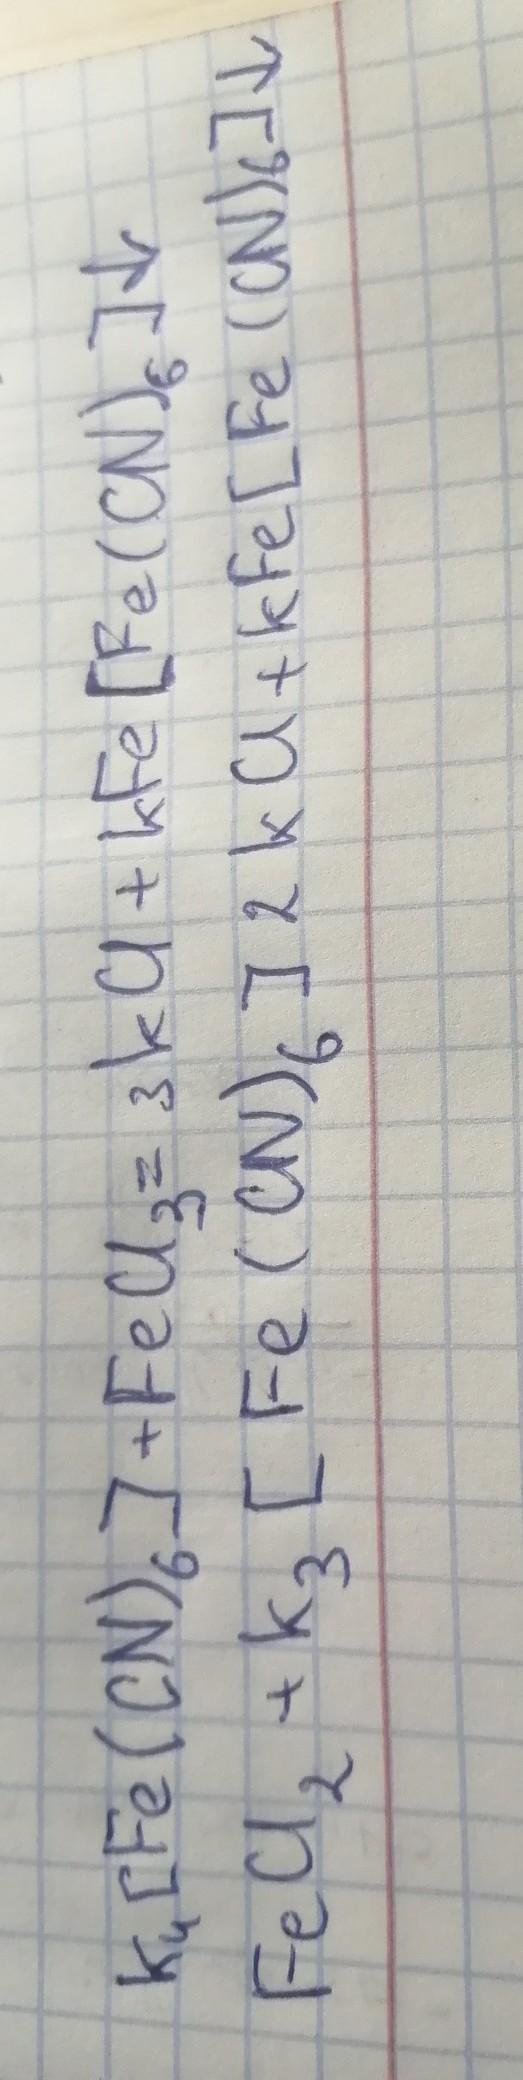 K₄[Fe(CN)₆]+FeCl₃=3kCl+kFe[Fe(CN)₆]↓
FeCl₂+k₃[Fe(CN)₆]2kCl+kFe[Fe(CN)₆]↓